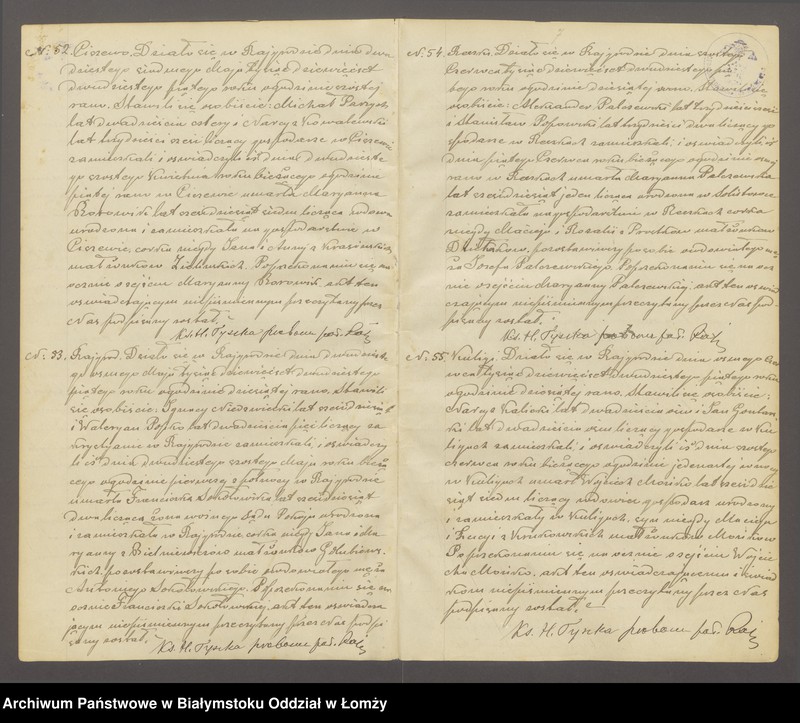 № 52. Ciszewo. Działo się w Rajgrodzie dnia dwu
dziestego siódmego Maja tysiąc dziewięćset
dwudziestego piątego roku o godzinie szóstej
rano. Stawili się osobiście: Michał
lat dwadzieścia cztery i Narcyz Kowalewski
lat trzydzieści sześć liczący gospodarze w Ciszewie
zamieszkali i oświadczyli iż dnia dwudzieste
go szóstego roku bieżącego o godzinie
piątej rano w Ciszewie umarła Maryanna
Borowik lat sześćdziesiąt siedem licząca wdowa
urodzona i zamieszkała na gospodarstwie w
Ciszewie, córka niegdy Jana i Anny z
małżonków Zielińskich. Po przekonaniu się na
ocznie o zejściu Maryanny Borowik, akt ten
oświadczającym niepiśmiennym przeczytany przez
Nas podpisany został.
Ks. H. Tyszka proboszcz par. Raj
№ 53. Rajgród. Działo się w Rajgrodzie dnia dwudzieste
go ósmego Maja tysiąc dziewięćset dwudziestego
piątego roku o godzinie dziesiątej rano. Stawili
się osobiście: Ignacy Niedźwiecki lat sześćdziesiąt
i Waleryan Popko lat dwadzieścia pięć liczący za
krystyanie w Rajgrodzie zamieszkali, i oświadczy
li iż dnia dwudziestego szóstego Maja roku bieżą
cego o godzinie pierwszej z północy w Rajgrodzie
umarła Franciszka Sokołowska lat sześćdziesiąt
dwa licząca żona woźnego Sądu Pokoju urodzona
i zamieszkała w Rajgrodzie córka niegdy Jana i Ma
ryanny z małżonków Gołubiews
kich, pozostawiwszy po sobie owdowiałego męża
Antoniego Sokołowskiego. Po przekonaniu się na
ocznie Franciszki Sokołowskiej, akt ten oświadcza
jącym niepiśmiennym przeczytany przez Nas podpi
sany został.
Ks. H. Tyszka proboszcz par. Raj
№ 54. Kosiki. Działo się w Rajgrodzie dnia szóstego
Czerwca tysiąc dziewięćset dwudziestego pią
tego roku o godzinie dziesiątej rano. Stawili się
osobiście: Aleksander Palczewski lat trzydzieści
i Stanisław Popowski lat trzydzieści dwa liczący go
spodarze w zamieszkali, i oświadczyli, iż
dnia piątego Czerwca roku bieżącego o godzinie
rano w umarła Maryanna Palczewska
lat sześćdziesiąt jeden licząca urodzona w
zamieszkała na gospodarstwie w córka
niegdy Macieja i Rozalii z małżonków
pozostawiwszy po sobie owdowiałego mę
ża Józefa Palczewskiego. Po przekonaniu się na ocz
nie o zejściu Maryanny Palczewskiej, akt ten oświad
czającym niepiśmiennym przeczytany przez Nas pod
pisany został.
Ks. H. Tyszka proboszcz par. Raj
№ 55. Kuligi. Działo się w Rajgrodzie dnia ósmego Czer
wca tysiąc dziewięćset dwudziestego piątego roku
o godzinie dziesiątej rano. Stawili się osobiście:
Narcyz Kalicki lat dwadzieścia osiem i Jan
ki lat dwadzieścia osiem liczący gospodarze w Ku
ligach zamieszkali, i oświadczyli iż dnia szóstego
czerwca roku bieżącego o godzinie jedenastej w nocy
w Kuligach umarł Wojciech Mońko lat sześćdzie
siąt siedem liczący wdowiec gospodarz urodzony
i zamieszkały w Kuligach, syn niegdy Macieja
i Łucyi z małżonków Mońków
Po przekonaniu się na ocznie o zejściu Wojcie
cha Mońko, akt ten oświadczającemu i świad
kom niepiśmiennym przeczytany przez Nas
podpisany został.
Ks. H. Tyszka proboszcz par. Raj
Archiwum Państwowe w Białymstoku Oddział w Łomży